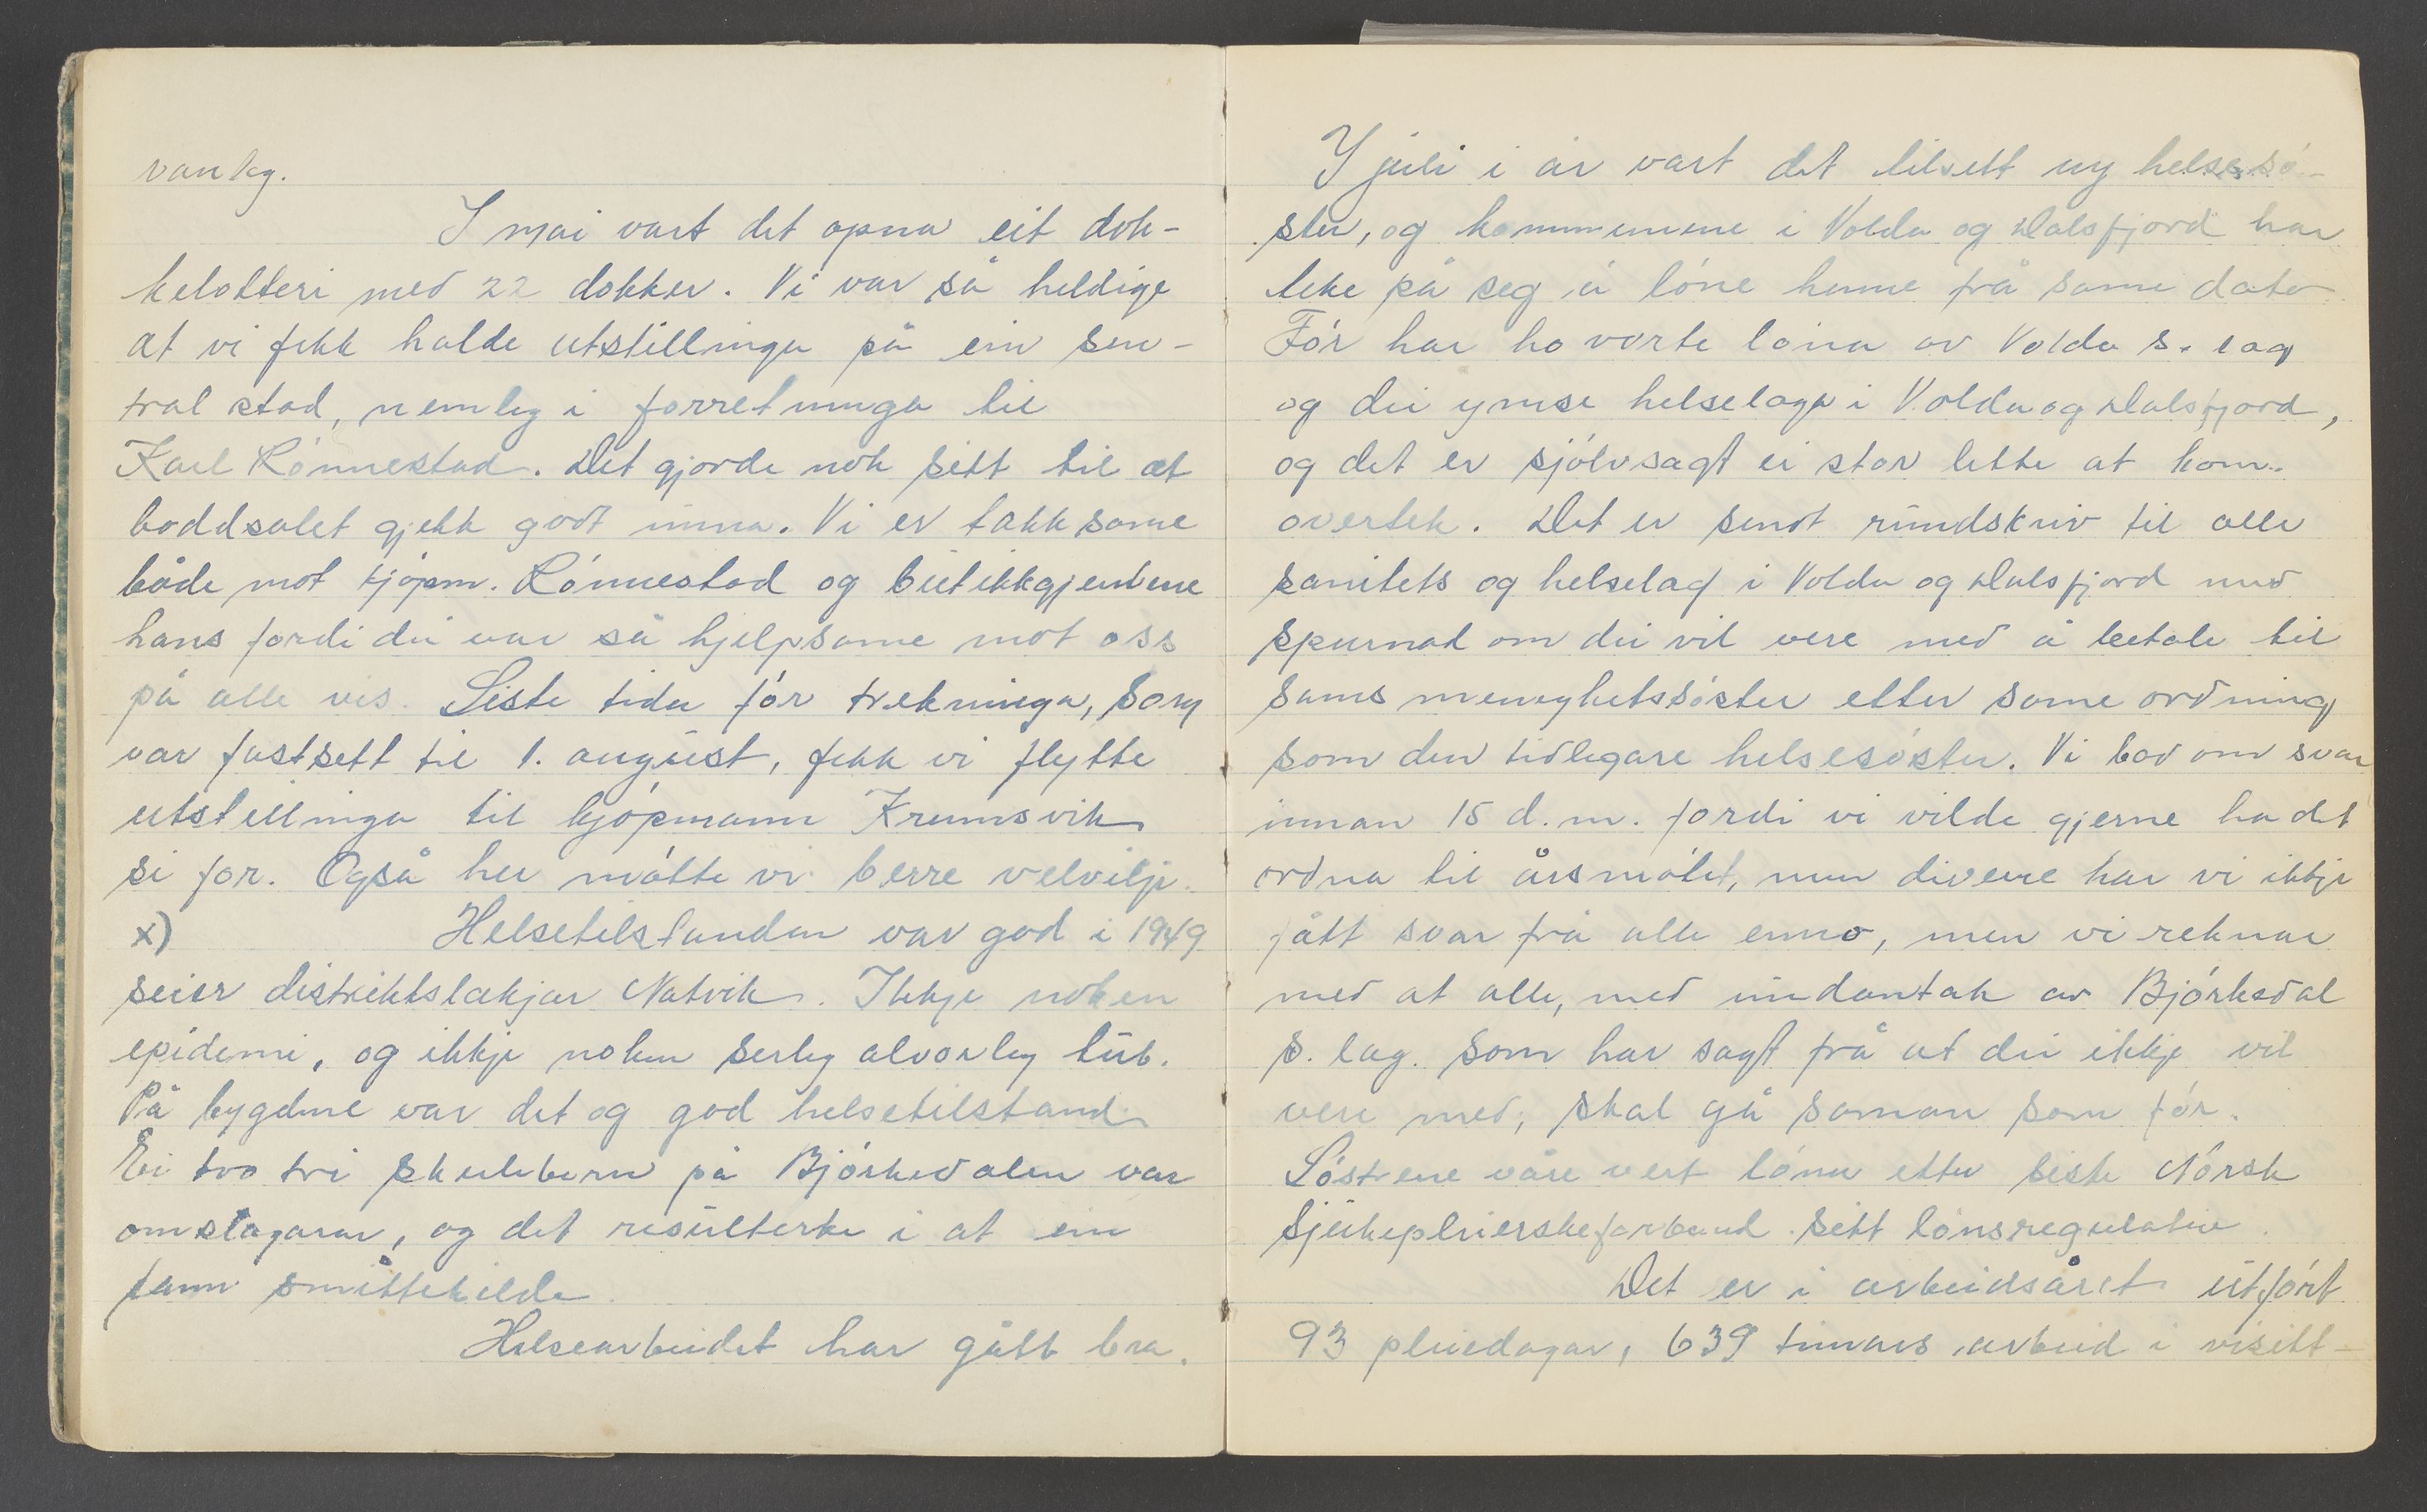 vanleg.
I mai vart det opna eit dok-
kelotteri med 22 dokker. Vi var så heldige
at vi fekk halde utstillinga på ein sen-
tral stad, nemleg i forretninga til
Karl Rønnestad. Det gjorde nok sitt til at
loddsalet gjekk godt unna. Vi er takksame
både mot kjøpm. Rønnestad og butikkgjentene
hans fordi dei var så hjelpsame mot oss
på alle vis. Siste tida før trekninga, som
var fastsett til 1. august, fekk vi flytte
utstillinga til kjøpmann Krumsvik
si for. Også her møtte vi berre velvilje.
x) Helsetilstanden var god i 1949
seier distriktslækjar Natvik. Ikkje noken
epidemi, og ikkje noken serleg alvorleg tub.
På bygdene var det og god helsetilstand.
Ei two tri skuleborn på Bjørkedalen var
omslagarar, og det resulterte i at ein
fann smittekilde.
Helsearbeidet har gått bra.
I juli i år vart det tilsett ny helsesø-
ster, og kommunene i Volda og Dalsfjord har
teke på seg å løne henne frå same dato
Før har ho vorte løna av Volda s. lag
og dei ymse helselaga i Volda og Dalsfjord,
og det er sjølvsagt ei stor lette at kom.
overtek. Det er sendt rundskriv til alle
sanitets og helselag i Volda og Dalsfjord med
spurnad om dei vil vere med å betale til
sams menighetssøster etter same ordning
som den tidlegare helsesøster. Vi bad om svar
innan 15 d.m. fordi vi vilde gjerne ha det
ordna til årsmøtet, men diverre har vi ikkje
fått svar frå alle enno, men vi reknar
med at alle, med undantak av Bjørkedal
s. lag. som har sagt frå at dei ikkje vil
vere med, skal gå saman som før.
Søstrene våre vert løna etter siste Norsk
Sjukepleierskeforbund sitt lønsregulativ.
Det er i arbeidsåret utført
93 pleiedagar, 639 timars arbeid i visitt-